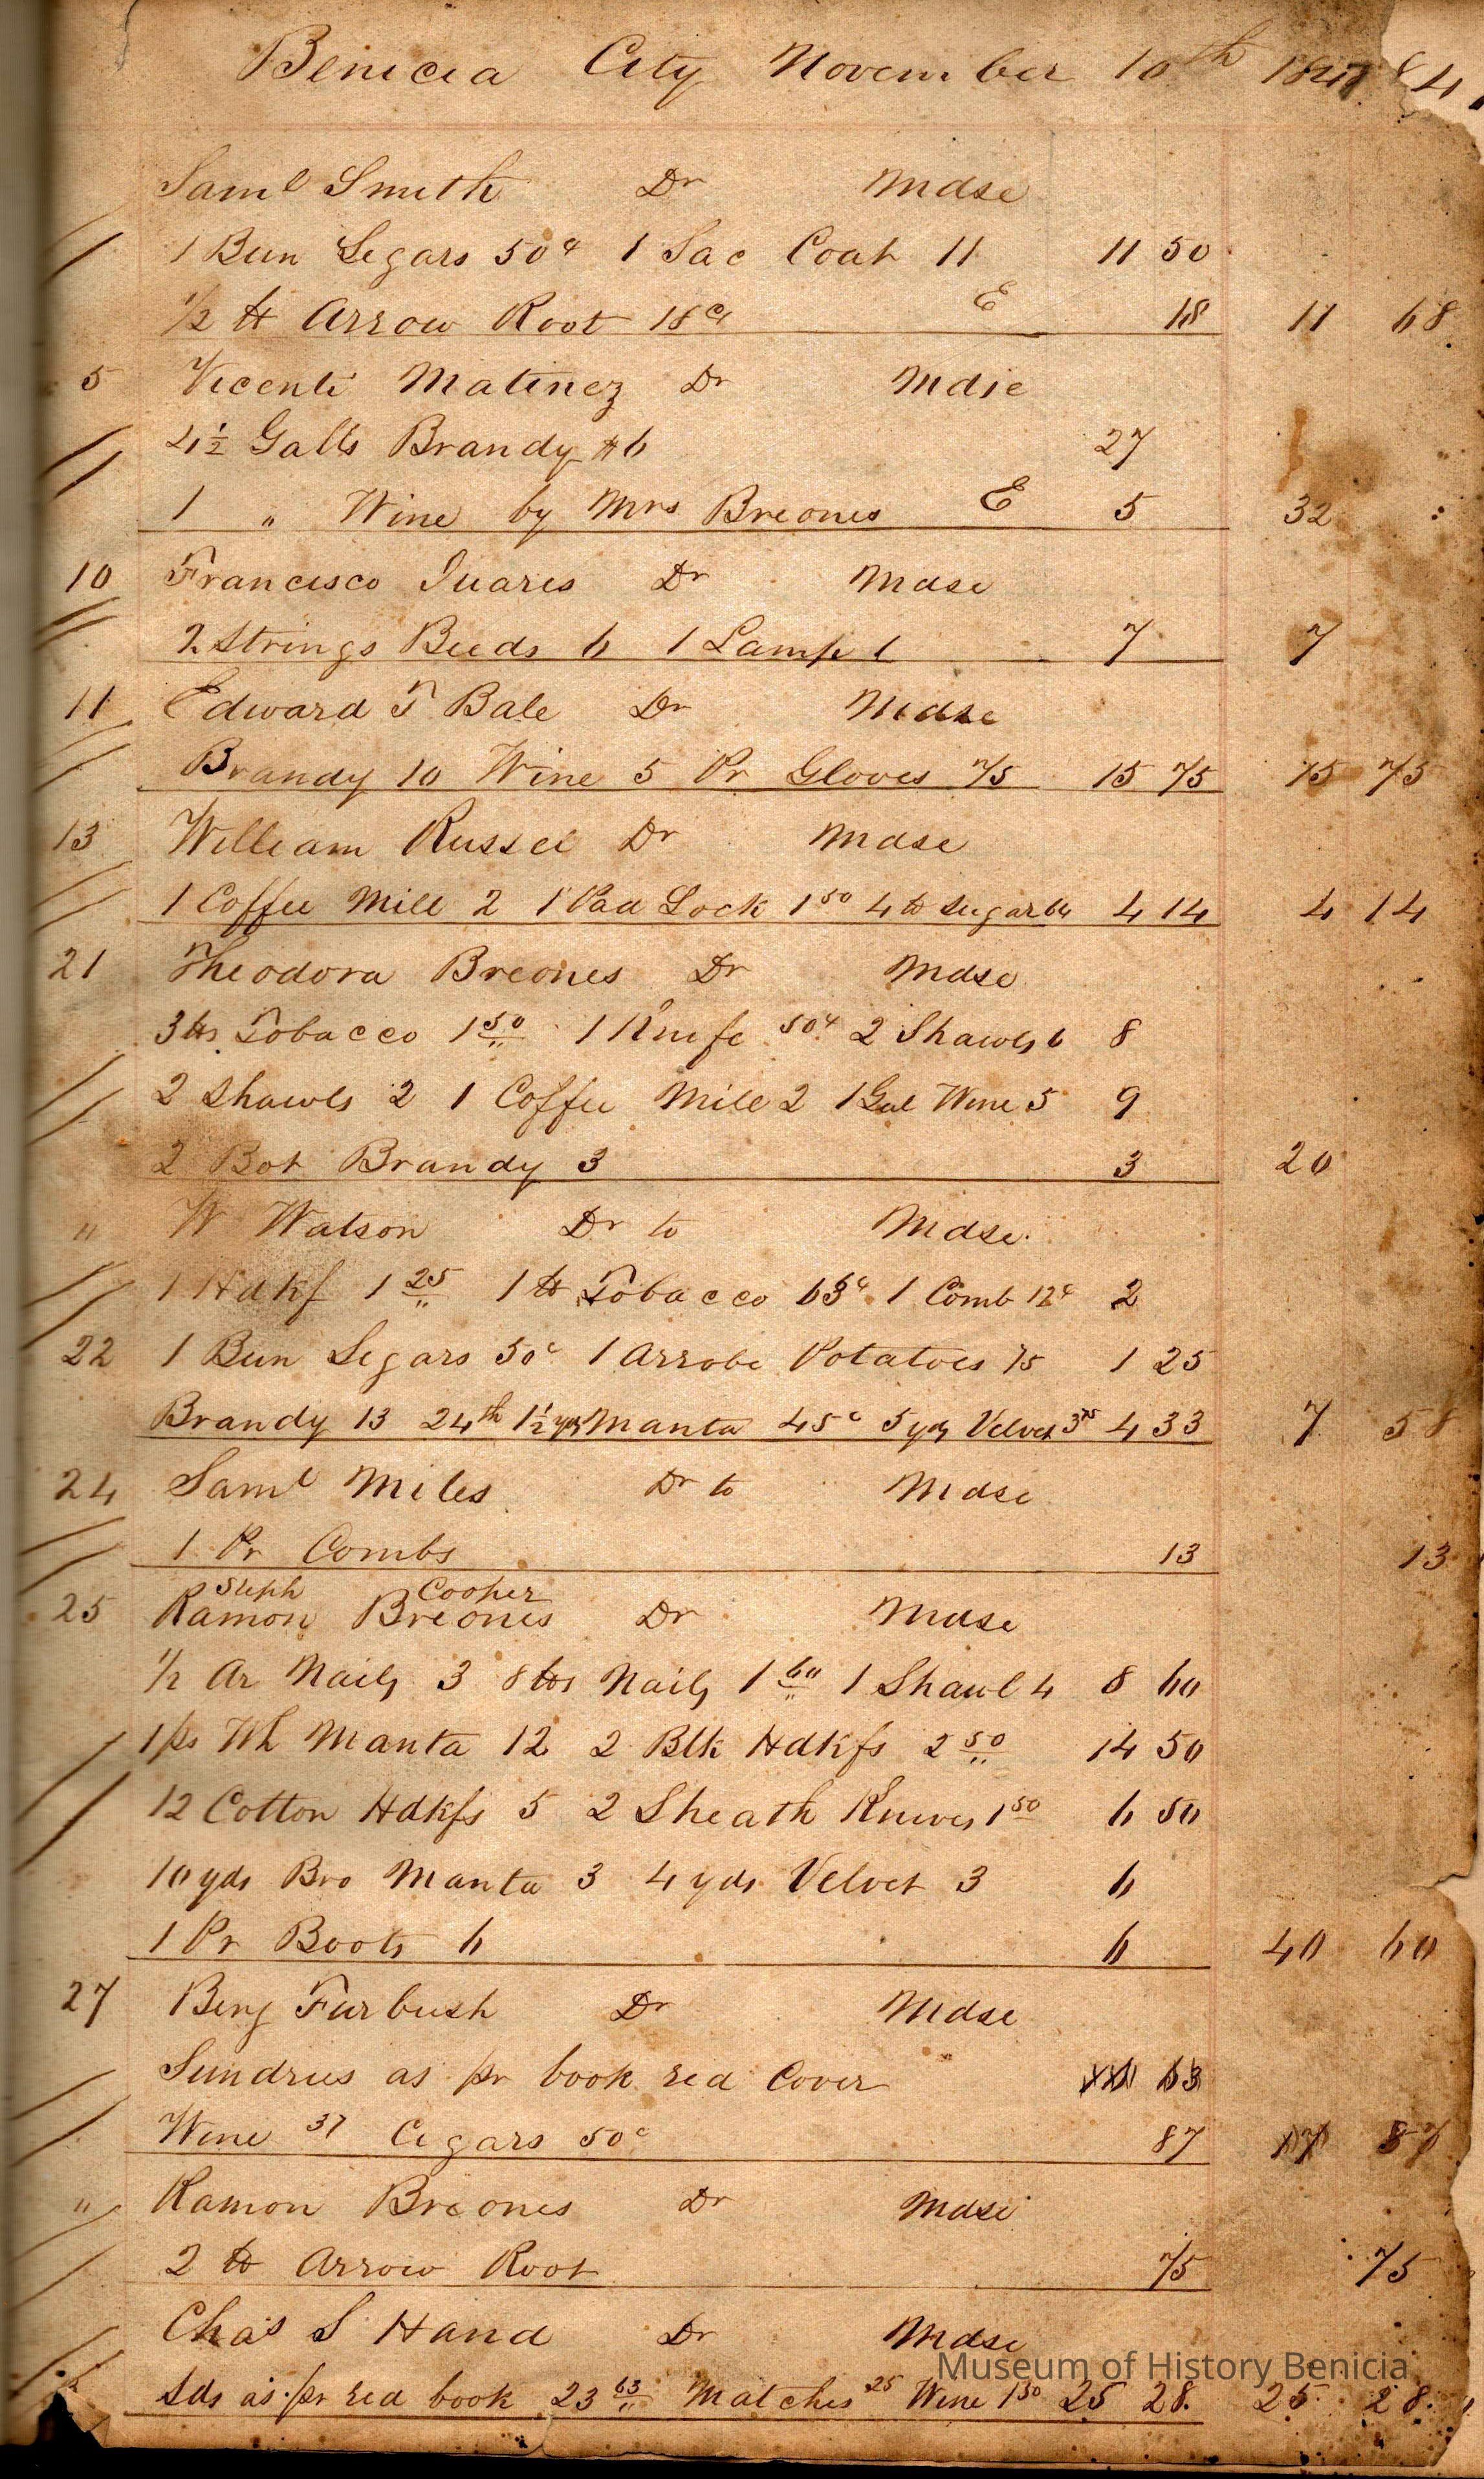 Benicia City November 10th 1847
Saml Smith Dr Mdse
1 Bun Segars 50c 1 Sac Coat 11 11 50
1/2 lb Arrow Root 18c E 18 11 68
5 Vicenti Matinez Dr Mdse
4 1/2 Galls Brandy $6 27
1 " Wine by Mrs Breones E 5 32
10 Francisco Juares Dr Mdse
2 Strings Beeds 6 1 Lamp 1 7 7
11 Edward T Bale Dr Mdse
Brandy 10 Wine 5 Pr Gloves 75 15 75 15 75
13 William Russel Dr Mdse
1 Coffee Mill 2 1 Pad Lock 1 50 4 lb Sugar 64 4 14 4 14
21 Theodora Breones Dr Mdse
3 lbs Tobacco 1 50 1 Knife 50c 2 Shawls 6 8
2 Shawls 2 1 Coffee Mill 2 1 Gal Wine 5 9
2 Bot Brandy 3 3 20
" W Watson Dr to Mdse
1 Hdkf 1 25 1 lb Tobacco 63c 1 Comb 12c 2
22 1 Bun Segars 50c 1 Arrobe Potatoes 75 1 25
Brandy 13 24th 1 1/2 yds Manta 45c 5 yds Velvet 3 75 4 33 7 58
24 Saml Miles Dr to Mdse
1 Pr Combs 13 13
Steph Cooper
25 Ramon Breones Dr Mdse
1/2 Ar Nails 3 8 lbs Nails 1 60 1 Shawl 4 8 60
1 ps Wh Manta 12 2 Blk Hdkfs 2 50 14 50
12 Cotton Hdkfs 5 2 Sheath Knives 1 50 6 50
10 yds Bro Manta 3 4 yds Velvet 3 6
1 Pr Boots 6 6 40 60
27 Benj Furbush Dr Mdse
Sundries as pr book red Cover 63
Wine 37 Cigars 50c 87 17 87
" Ramon Breones Dr Mdse
2 lb Arrow Root 75 75
Chas S Hand Dr Mdse
Museum of History Benicia
Sds as pr red book 23 63 Matches 25 Wine 1 50 25 28 25 28